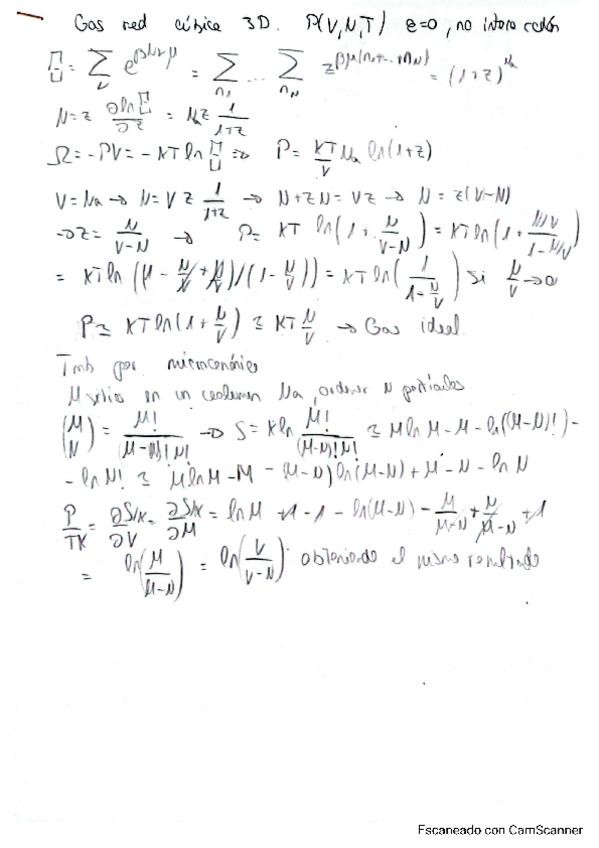 Gas red cúbica 3D. P(V,N,T) e=0, no interacción
Ξ = Σ_ν e^{βNνμ} = Σ_{n1} ... Σ_{nN} z^{βμ(n1+...+nN)} = (1+z)^{Na}
N = z ∂lnΞ/∂z = Na z 1/(1+z)
Ω = -PV = -KT ln Ξ => P = KT/V Na ln(1+z)
V = Na → N = V z 1/(1+z) → N+zN = Vz → N = z(V-N)
→ z = N/(V-N) → P = KT ln(1 + N/(V-N)) = KT ln(1 + (N/V)/(1-N/V))
= KT ln((1 - N/V + N/V)/(1 - N/V)) = KT ln(1/(1-N/V)) si N/V → 0
P ≃ KT ln(1 + N/V) ≃ KT N/V → Gas ideal
Tmb por microcanónico
M sitios en un volumen Na, ordenar N partículas
(M N) = M!/((M-N)!N!) → S = K ln M!/((M-N)!N!) ≃ M ln M - M - ln((M-N)!) -
- ln N! ≃ M ln M - M - (M-N) ln(M-N) + M - N - ln N
P/TK = ∂S/K/∂V = ∂S/K/∂M = ln M + 1 - 1 - ln(M-N) - M/(M-N) + N/(M-N) + 1
= ln(M/(M-N)) = ln(V/(V-N)) obteniendo el mismo resultado
Escaneado con CamScanner